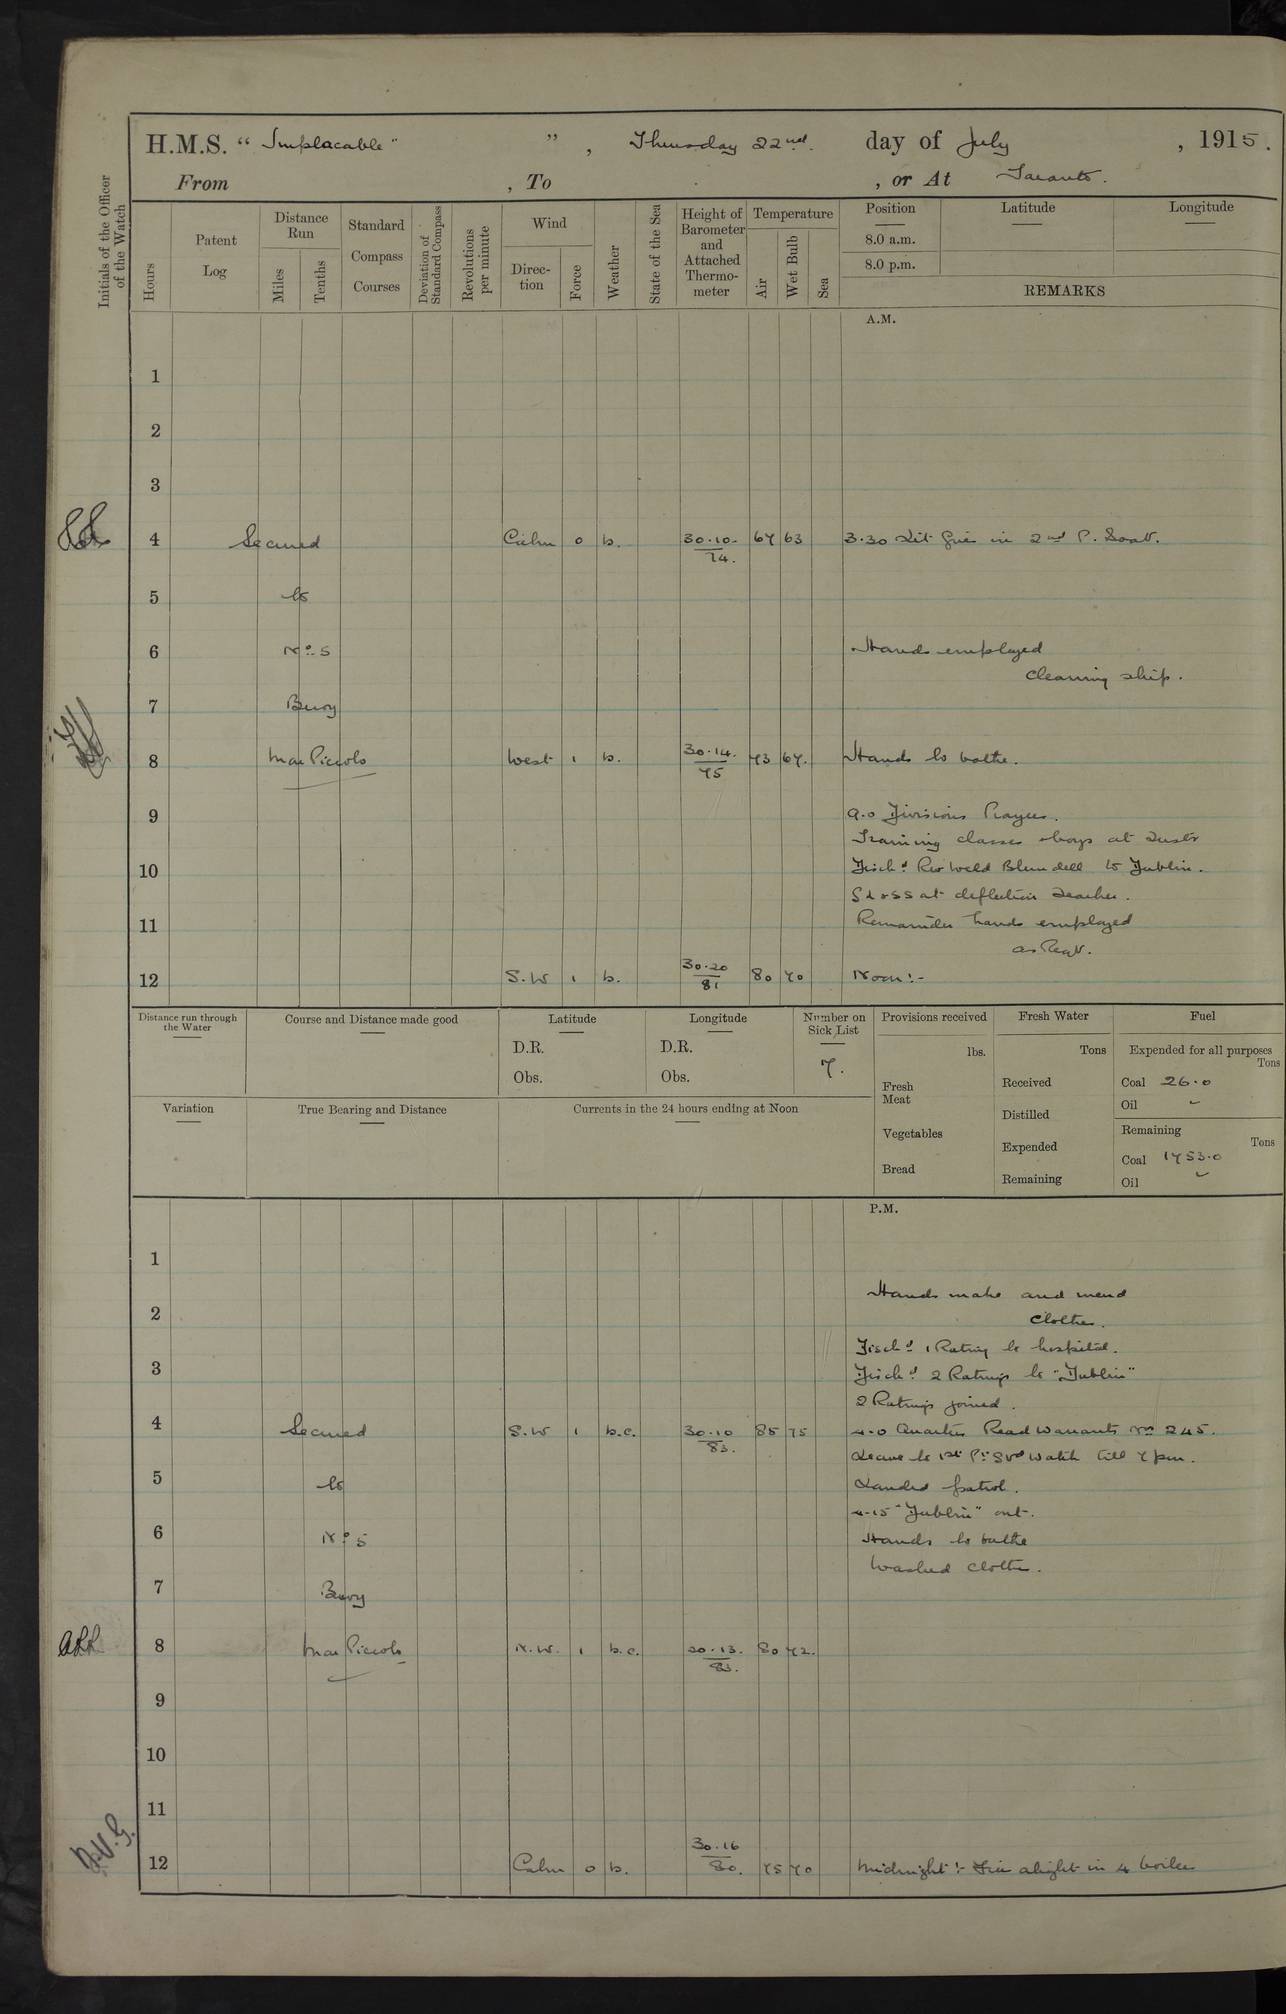 H.M.S. “ Implacable ” ” , Thursday 22nd. day of July , 1915.
From , To , or At Taranto.
Initials of the Officer of the Watch
Hours
Patent Log
Distance Run
Miles
Tenths
Standard Compass Courses
Deviation of Standard Compass
Revolutions per minute
Wind
Direction
Force
Weather
State of the Sea
Height of Barometer and Attached Thermometer
Temperature
Air
Wet Bulb
Sea
Position
8.0 a.m.
8.0 p.m.
Latitude
Longitude
REMARKS
A.M.
1
2
3
4 Secured Calm 0 b. 30.10. 67 63 3.30 Lit fires in 2nd P.
74.
5 to
6 No 5 Hands employed
cleaning ship.
7 Buoy
8 Mar Piccolo West 1 b. 30.14. 73 67. Hands to bathe.
75
9 9.0 Divisions Prayers.
Training classes boys at Insts
10 Disch'd Rev Weld Blundell to Dublin.
at deflection teacher.
11 Remainder hands employed
as Req.
12 S.W 1 b. 30.20 80 70 Noon:-
81
Distance run through the Water
Course and Distance made good
Latitude
D.R.
Obs.
Longitude
D.R.
Obs.
Number on Sick List
7.
Provisions received
lbs.
Fresh Meat
Vegetables
Bread
Fresh Water
Tons
Received
Distilled
Expended
Remaining
Fuel
Expended for all purposes
Tons
Coal 26.0
Oil
Remaining
Tons
Coal 1753.0
Oil
Variation
True Bearing and Distance
Currents in the 24 hours ending at Noon
P.M.
1
Hands make and mend
2 clothes.
Disch'd 1 Rating to hospital.
3 Disch'd 2 Ratings to "Dublin"
2 Ratings joined.
4 Secured S.W 1 b.c. 30.10 85 75 4.0 Quarters Read Warrants No 245.
83.
Leave to 1st Pt Std Watch till 7 pm.
5 to Landed patrol.
4.15 "Dublin" out.
6 No 5 Hands to bathe
Washed clothes.
7 Buoy
8 Mar Piccolo N.W. 1 b.c. 30.13. 80 72.
83.
9
10
11
12 Calm 0 b. 30.16 75 70 Midnight:- Fires alight in 4 boilers
80.